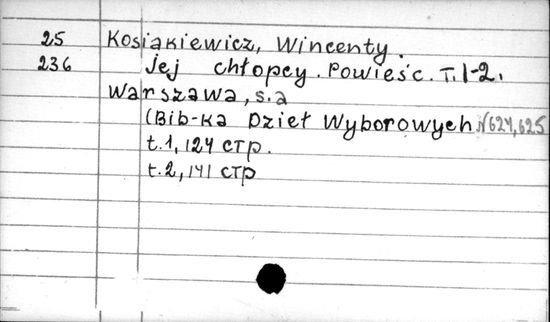 25 Kosiakiewicz, Wincenty.
236 Jej chłopcy. Powieść. T.1-2.
Warszawa, s.a
(Bib-ka Dzieł Wyborowych N624,625
t.1, 124 стр.
t.2, 141 стр